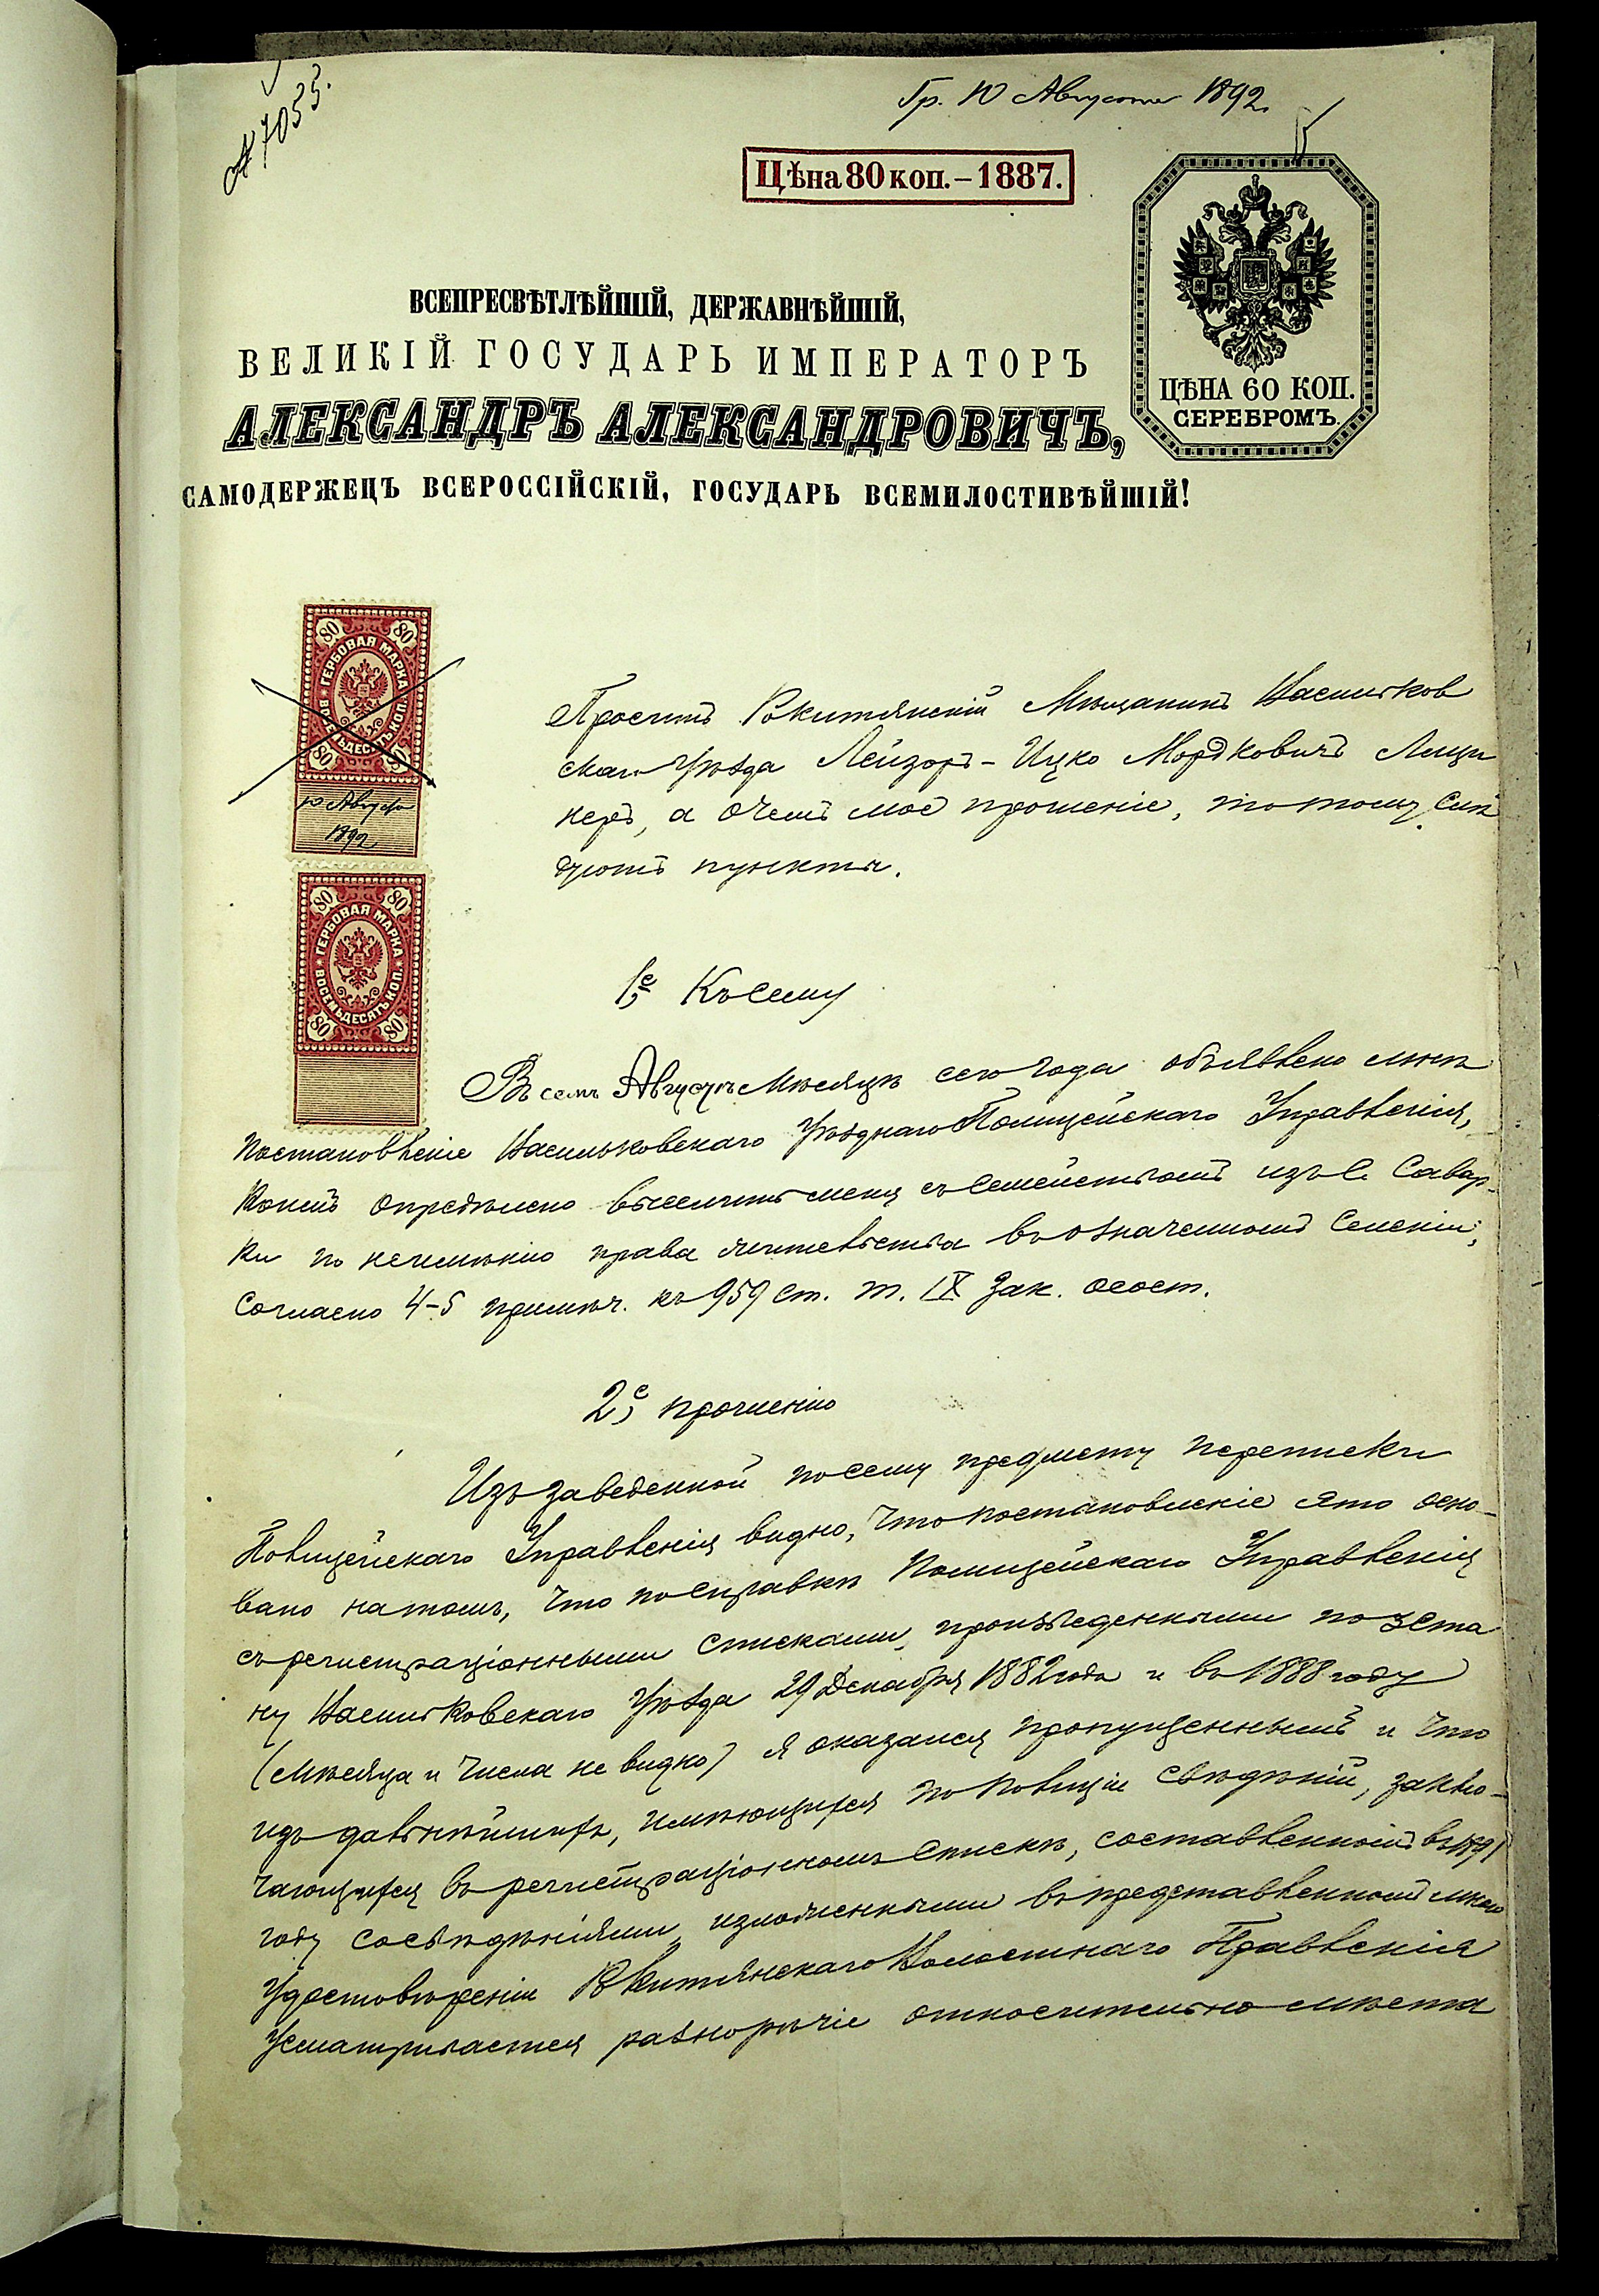 № 7055.
Гр. 10 Августа 1892.
Цѣна 80 коп. – 1887.
ЦѢНА 60 КОП.
СЕРЕБРОМЪ.
ВСЕПРЕСВѢТЛѢЙШІЙ, ДЕРЖАВНѢЙШІЙ,
ВЕЛИКІЙ ГОСУДАРЬ ИМПЕРАТОРЪ
АЛЕКСАНДРЪ АЛЕКСАНДРОВИЧЪ,
САМОДЕРЖЕЦЪ ВСЕРОССІЙСКІЙ, ГОСУДАРЬ ВСЕМИЛОСТИВѢЙШІЙ!
80 80
ГЕРБОВАЯ МАРКА
ВОСЕМЬДЕСЯТЪ КОП.
80 80
10 Августа
1892
80 80
ГЕРБОВАЯ МАРКА
ВОСЕМЬДЕСЯТЪ КОП.
80 80
Проситъ Рокитянскій Мѣщанинъ Васильков
скаго Уѣзда Лейзоръ-Ицко Мордковичъ
неръ, а о чемъ мое прошеніе, то тому слѣ
дуютъ пункты.
1е, Къ сему
Въ семъ Августѣ Мѣсяцѣ сего года объявлено мнѣ
постановленіе Васильковскаго Уѣзднаго Полицейскаго Управленія,
коимъ опредѣлено выселить меня съ семействомъ изъ с. Савар-
ки по неимѣнію права жительства въ означенномъ селеніи;
согласно 4-5 примѣч. къ 959 ст. т. IX Зак. о сост.
2е, прошенію
Изъ заведенной по сему предмету переписки
Полицейскаго Управленія видно, что постановленіе это осно-
вано на томъ, что по справкѣ Полицейскаго Управленія
съ регистраціонными списками, произведенными по 3 ста
ну Васильковскаго Уѣзда 29 Декабря 1882 года и въ 1888 году
(мѣсяца и числа не видно) я оказался пропущеннымъ и что
изъ дальнѣйшихъ, имѣющихся по Полиціи свѣдѣній, заклю-
чающихся въ регистраціонномъ спискѣ, составленномъ въ 1891
году со свѣдѣніями, изложенными въ представленномъ мною
удостовѣреніи Рокитянскаго Волостнаго Правленія
усматривается разнорѣчіе относительно мѣста